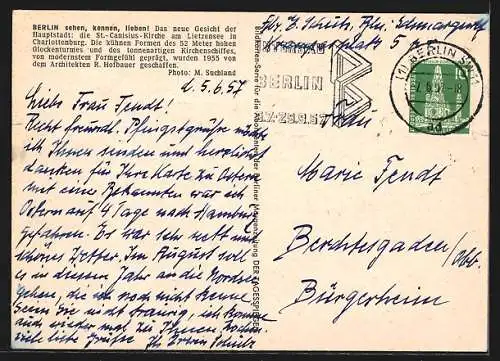 BERLIN sehen, kennen, lieben! Das neue Gesicht der
Hauptstadt: die St.-Canisius-Kirche am Lietzensee in
Charlottenburg. Die kühnen Formen des 52 Meter hohen
Glockenturmes und des tonnenartigen Kirchenschiffes,
von modernstem Formgefühl geprägt, wurden 1955 von
dem Architekten R. Hofbauer geschaffen.
Photo: M. Suchland
d. 5.6.57
Liebe Frau Fendt!
Recht freundl. Pfingstgrüße möchte
ich Ihnen senden und herzlichst
danken für Ihre Karte zu Ostern
mit eine Bekannten war ich
Ostern auf 4 Tage nach Hamburg
gefahren. Es war sehr nett und
schönes Wetter. Im August soll
es in diesem Jahr an die Nordsee
gehen, die ich noch nicht kenne
Seien Sie nicht traurig, ich komme
auch wieder mal zu Ihnen.
viele liebe Grüße. Ihr Erwin Schulz
Bildkarten-Serie für die Abonnenten der Berliner Morgenzeitung DER TAGESSPIEGEL
Abs. E. Schulz, Bln.
BERLIN
(1) BERLIN SW 11
ad
10
Frau
Marie Fendt
Berchtesgaden/obb.
Bürgerheim